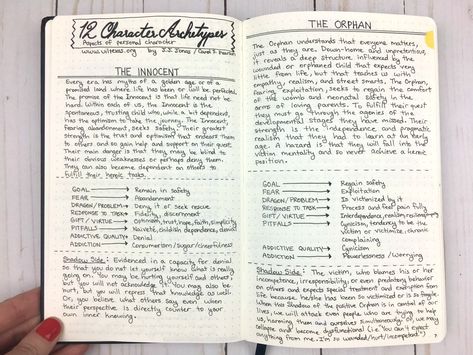 12 Character Archetypes
Aspects of personal character
www.uiltexas.org by J.S. Jones / Carol S. Pearson
THE INNOCENT
Every era has myths of a golden age or of a
promised land where life has been or will be perfect.
The promise of the Innocent is that life need not be
hard. Within each of us, the Innocent is the
spontaneous, trusting child who, while a bit dependent,
has the optimism to take the journey. The Innocent,
fearing abandonment, seeks safety. Their greatest
strength is the trust and optimism that endears them
to others and so gain help and support on their quest.
Their main danger is that they may be blind to
their obvious weaknesses or perhaps deny them.
They can also become dependent on others to
fulfill their heroic tasks.
GOAL Remain in safety
FEAR Abandonment
DRAGON/PROBLEM Deny it or seek rescue
RESPONSE TO TASK Fidelity, discernment
GIFT/VIRTUE Optimism, trust, hope, faith, simplicity
PITFALLS Naiveté, childish dependence, denial
ADDICTIVE QUALITY Denial
ADDICTION Consumerism/sugar/cheerfulness
Shadow Side: Evidenced in a capacity for denial
so that you do not let yourself know what is really
going on. You may be hurting yourself and others,
but you will not acknowledge it. You may also be
hurt, but you will repress that knowledge as well.
Or, you believe what others say even when
their perspective is directly counter to your
own inner knowing.
THE ORPHAN
The Orphan understands that everyone matters,
just as they are. Down-home and unpretentious,
it reveals a deep structure influenced by the
wounded or orphaned child that expects very
little from life, but that teaches us with
empathy, realism, and street smarts. The Orphan,
fearing exploitation, seeks to regain the comfort
of the womb and neonatal safety in the
arms of loving parents. To fulfill their quest
they must go through the agonies of the
developmental stages they have missed. Their
strength is the independence and pragmatic
realism that they had to learn at an early
age. A hazard is that they will fall into the
victim mentality and so never achieve a heroic
position.
GOAL Regain safety
FEAR Exploitation
DRAGON/PROBLEM Is victimized by it
RESPONSE TO TASK Process and feel pain fully
GIFT/VIRTUE Interdependence, realism, resilience
PITFALLS Cynicism, tendency to be the
victim or victimize, chronic
complaining
ADDICTIVE QUALITY Cynicism
ADDICTION Powerlessness/worrying
Shadow Side: The victim, who blames his or her
incompetence, irresponsibility, or even predatory behavior
on others and expects special treatment and exemption from
life because he/she has been so victimized or is so fragile.
When this Shadow of the positive Orphan is in control of our
lives, we will attack even people who are trying to help
us, harming them and ourselves simultaneously. Or, we may
collapse and become dysfunctional (i.e. "You can't expect
anything from me. I'm so wounded/hurt/incompetent")